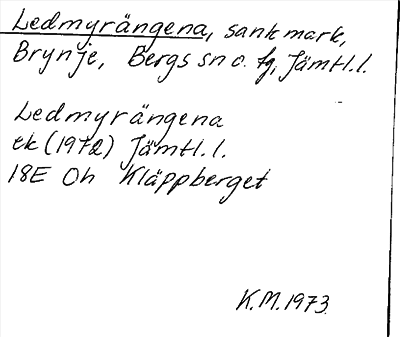 Ledmyrängena, sank mark,
Brynje, Bergs sn o. tg, Jämtl. l.
Ledmyrängena
ek (1972) Jämtl. l.
18E 0h Kläppberget
K.M. 1973